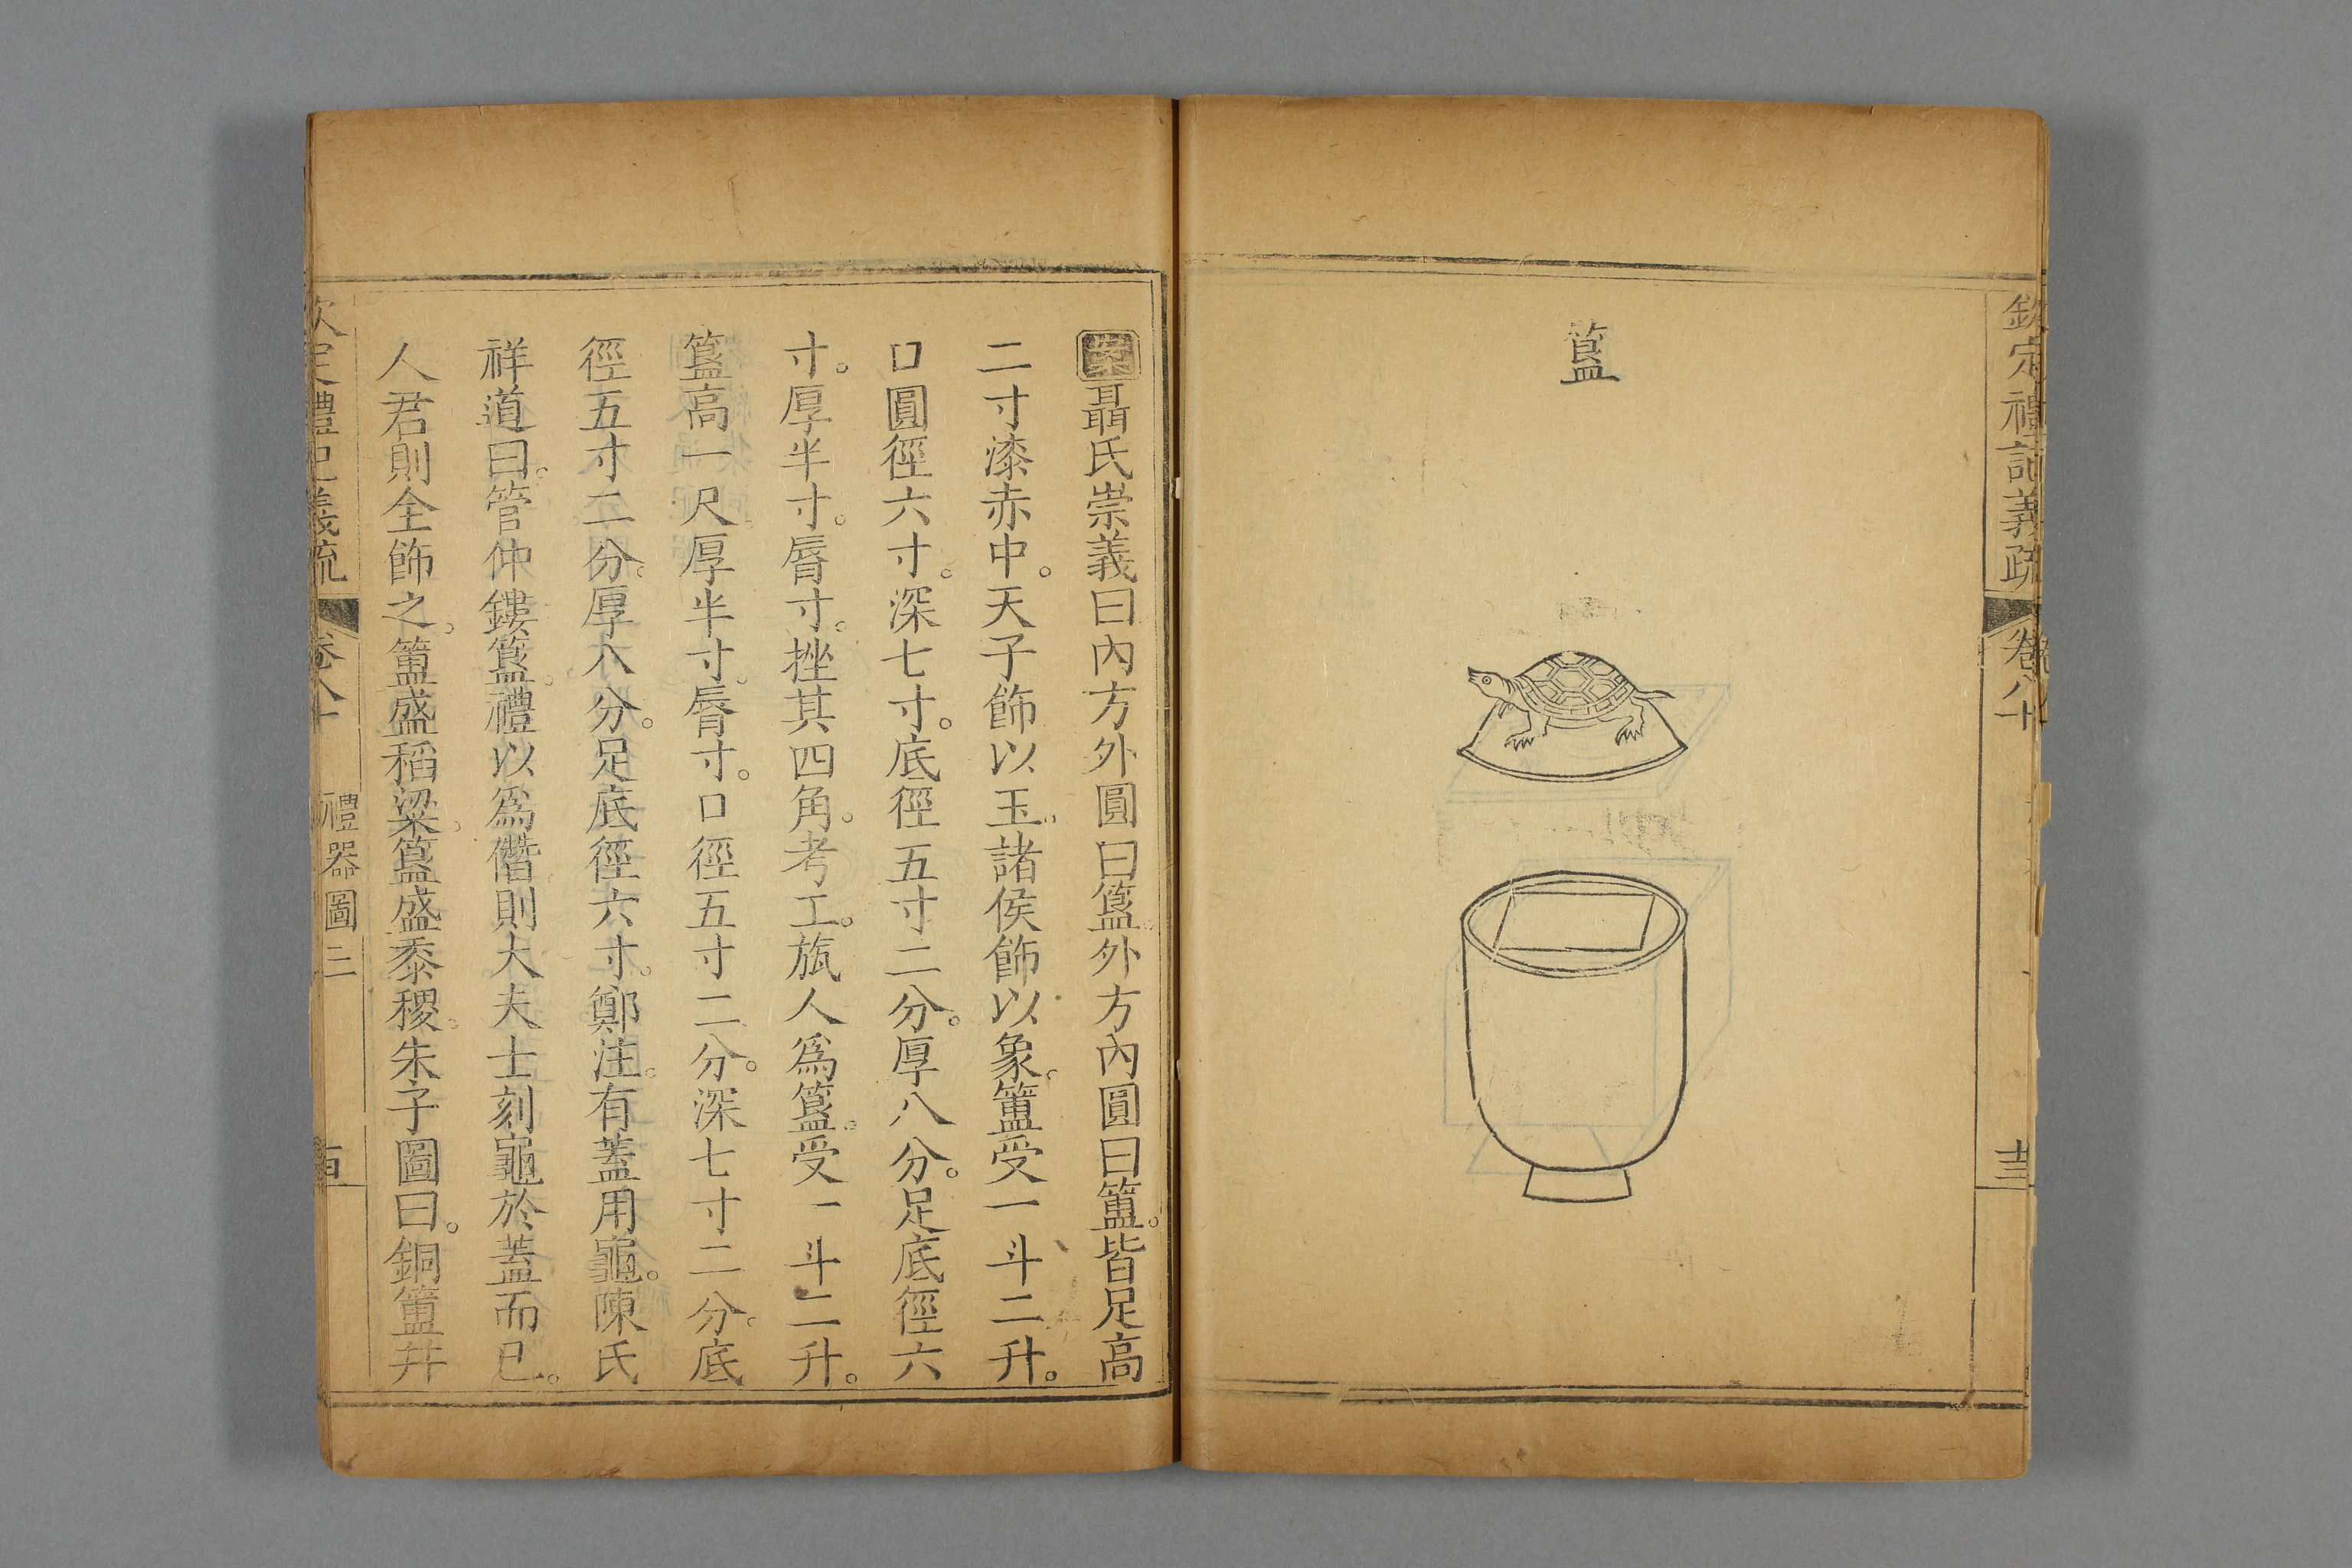 欽定禮記義疏 卷八十
簋
聶氏崇義曰內方外圓曰簋。外方內圓曰簠。皆足高
二寸漆赤中。天子飾以玉。諸侯飾以象。簠受一斗二升。
口圓徑六寸。深七寸。底徑五寸二分。厚八分。足底徑六
寸。厚半寸。脣寸。挫其四角。考工。旊人爲簋。受一斗二升。
簋高一尺。厚半寸。脣寸。口徑五寸二分。深七寸二分。底
徑五寸二分。厚八分。足底徑六寸。鄭注。有蓋用龜。陳氏
祥道曰。管仲鏤簋。禮以爲僭。則大夫士刻龜於蓋而已。
人君則全飾之。簠盛稻粱。簋盛黍稷。朱子圖曰。銅簠幷
欽定禮記義疏 卷八十 禮器圖三